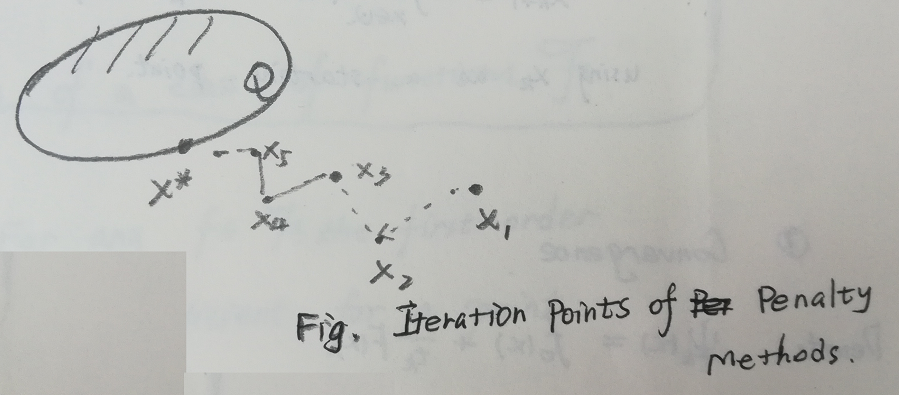 Q
X* X5
X4 X3
X2 X1
Fig. Iteration Points of Penalty
Methods.